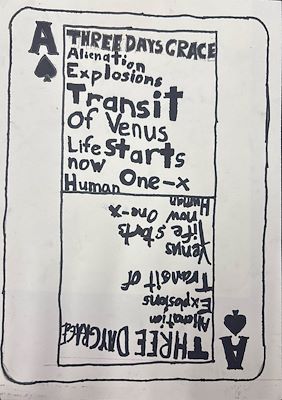 A
THREE DAYS GRACE
Alienation
Explosions
Transit
Of Venus
Life Starts
now One-x
Human
A
THREE DAYGRACE
Alienation
Explosions
Transit of
Venus
life starts
now One-x
Human